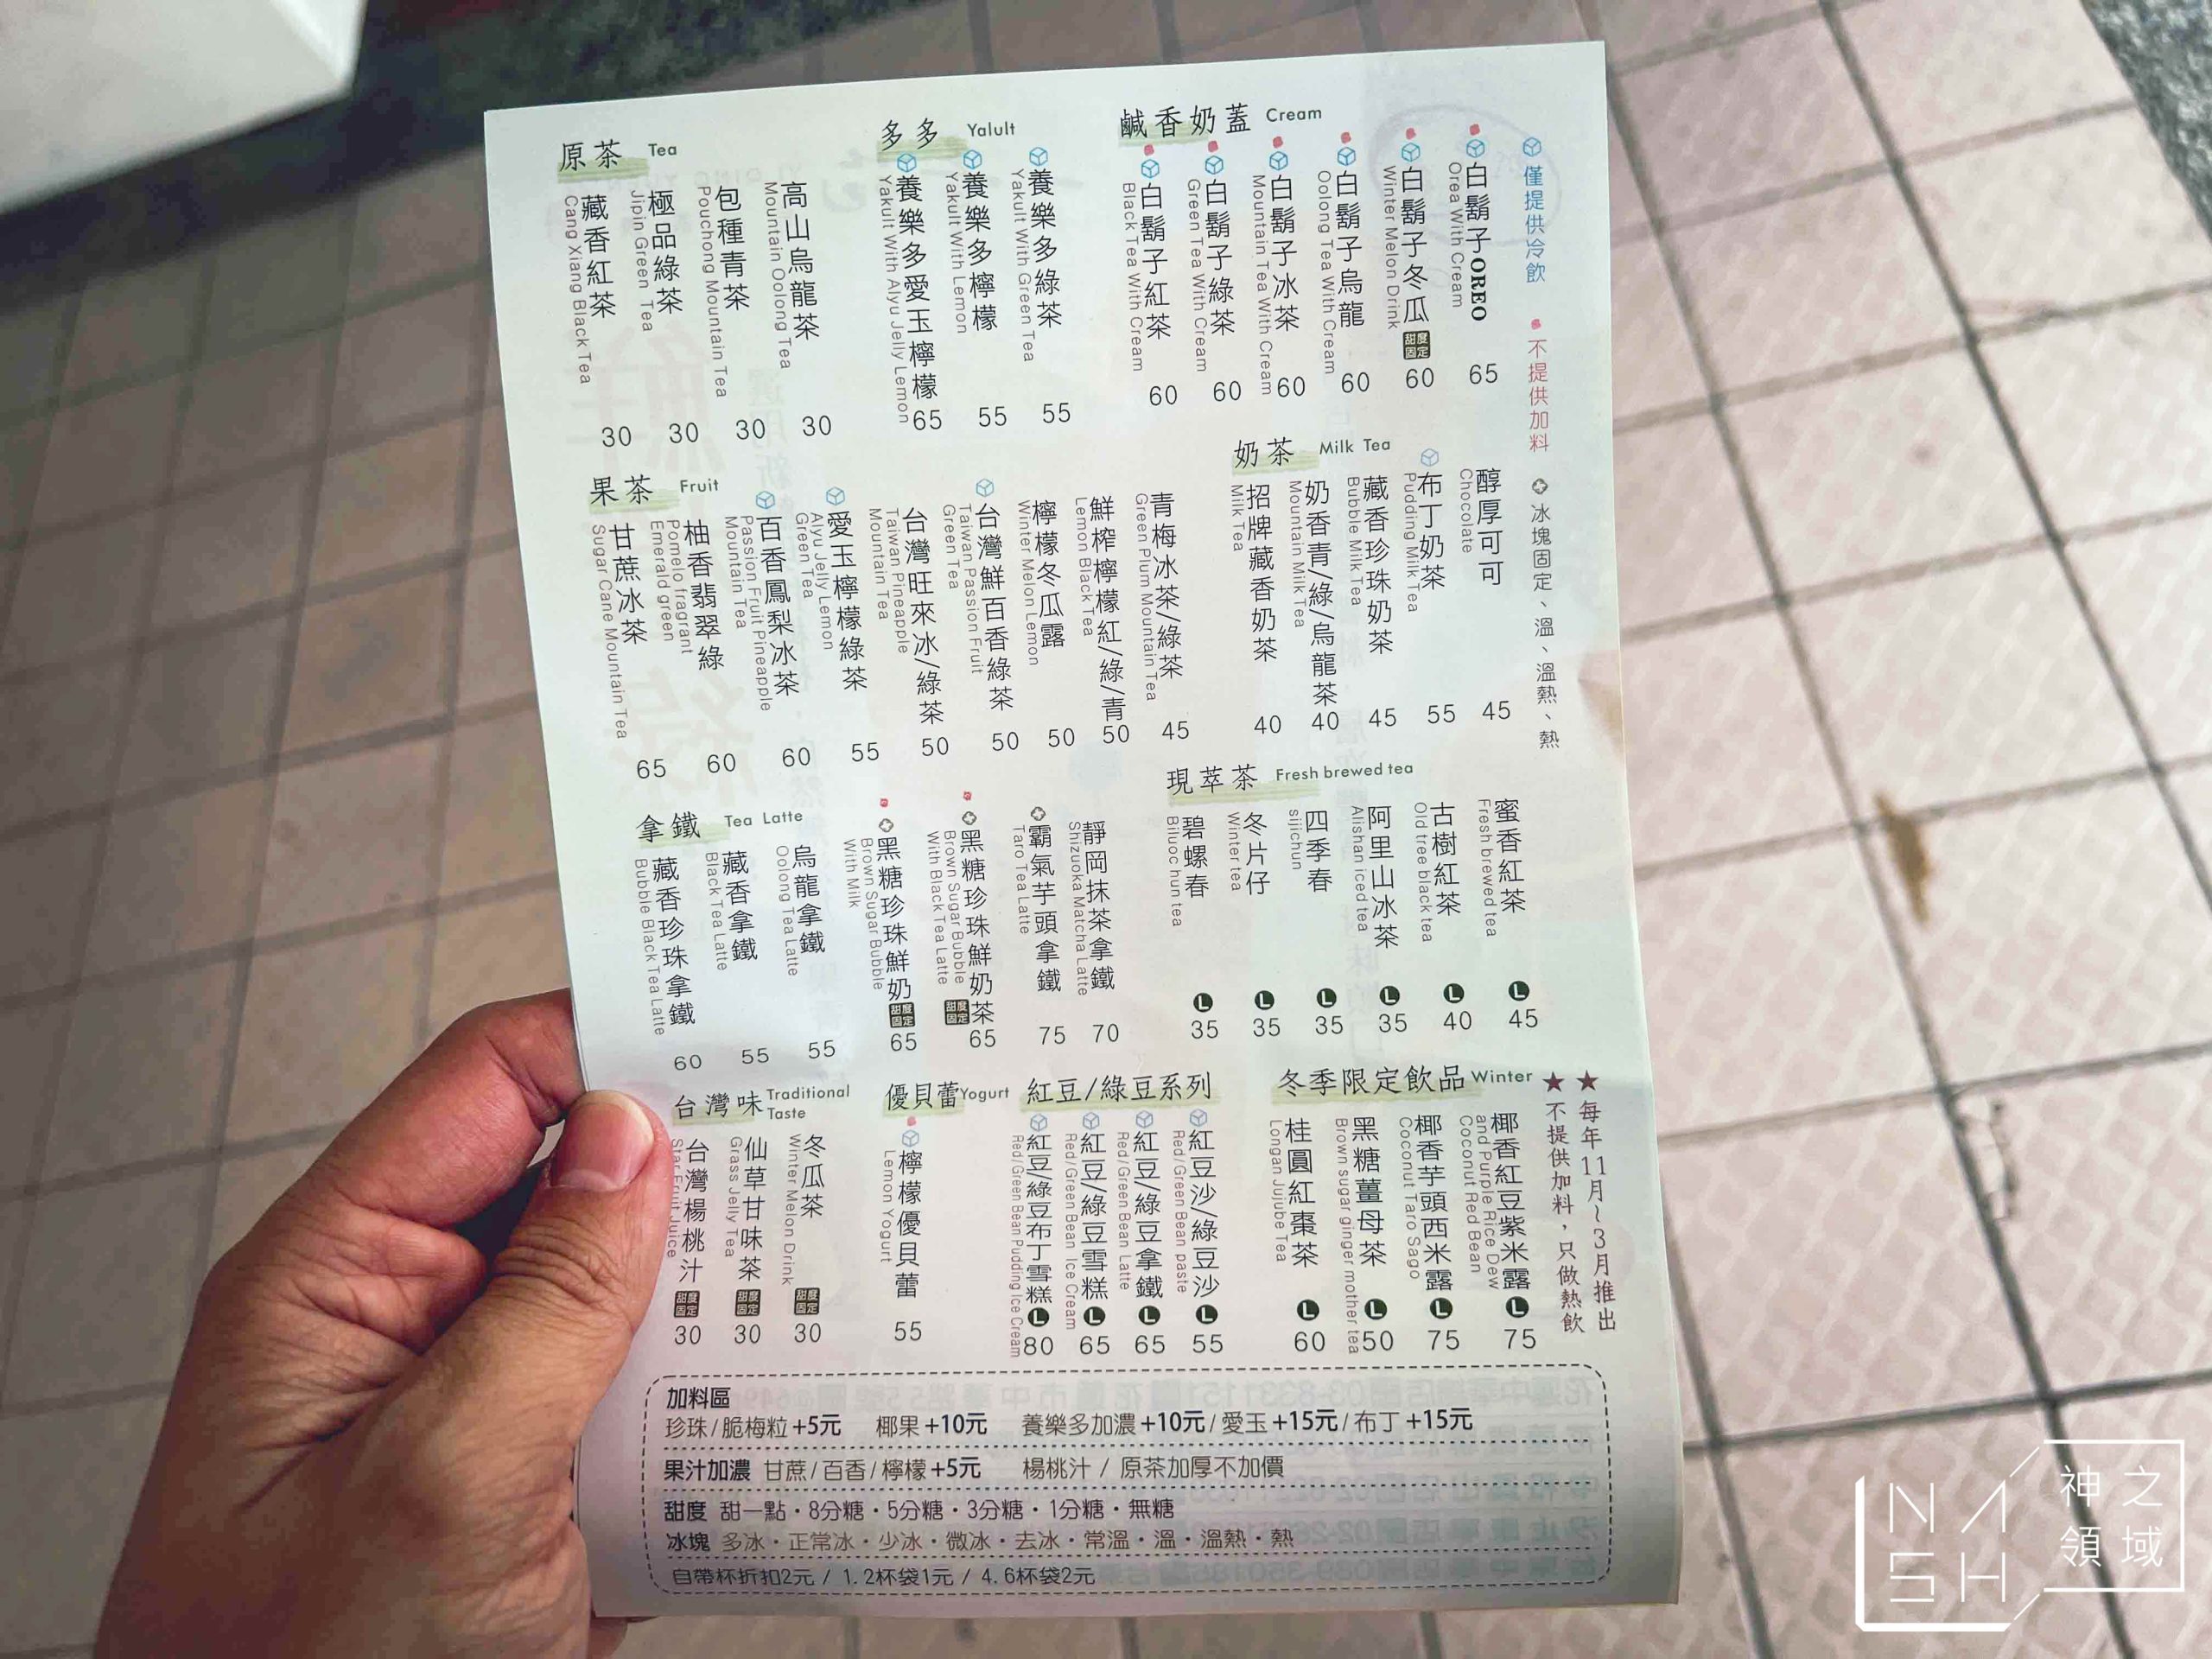 原茶 Tea
藏香紅茶
Cang Xiang Black Tea
30
極品綠茶
Jipin Green Tea
30
包種青茶
Pouchong Mountain Tea
30
高山烏龍茶
Mountain Oolong Tea
30
多多 Yalult
養樂多愛玉檸檬
Yakult With Alyu Jelly Lemon
65
養樂多檸檬
Yakult With Lemon
55
養樂多綠茶
Yakult With Green Tea
55
鹹香奶蓋 Cream
白鬍子紅茶
Black Tea With Cream
60
白鬍子綠茶
Green Tea With Cream
60
白鬍子冰茶
Mountain Tea With Cream
60
白鬍子烏龍
Oolong Tea With Cream
60
白鬍子冬瓜 甜度固定
Winter Melon Drink
60
白鬍子OREO
Orea With Cream
65
僅提供冷飲 不提供加料 冰塊固定、溫、溫熱、熱
果茶 Fruit
甘蔗冰茶
Sugar Cane Mountain Tea
65
柚香翡翠綠
Pomelo fragrant
Emerald green
60
百香鳳梨冰茶
Passion Fruit Pineapple
Mountain Tea
60
愛玉檸檬綠茶
Alyu Jelly Lemon
Green Tea
55
台灣旺來冰/綠茶
Taiwan Pineapple
Mountain Tea
50
台灣鮮百香綠茶
Taiwan Passion Fruit
Green Tea
50
檸檬冬瓜露
Winter Melon Lemon
50
鮮榨檸檬紅/綠/青
Lemon Black Tea
50
青梅冰茶/綠茶
Green Plum Mountain Tea
45
奶茶 Milk Tea
招牌藏香奶茶
Milk Tea
40
奶香青/綠/烏龍茶
Mountain Milk Tea
40
藏香珍珠奶茶
Bubble Milk Tea
45
布丁奶茶
Pudding Milk Tea
55
醇厚可可
Chocolate
45
拿鐵 Tea Latte
藏香珍珠拿鐵
Bubble Black Tea Latte
60
藏香拿鐵
Black Tea Latte
55
烏龍拿鐵
Oolong Tea Latte
55
黑糖珍珠鮮奶 甜度固定
Brown Sugar Bubble
With Milk
65
黑糖珍珠鮮奶茶 甜度固定
Brown Sugar Bubble
With Black Tea Latte
65
霸氣芋頭拿鐵
Taro Tea Latte
75
靜岡抹茶拿鐵
Shizuoka Matcha Latte
70
現萃茶 Fresh brewed tea
碧螺春
Biluoc hun tea
L 35
冬片仔
Winter tea
L 35
四季春
sijichun
L 35
阿里山冰茶
Alishan iced tea
L 35
古樹紅茶
Old tree black tea
L 40
蜜香紅茶
Fresh brewed tea
L 45
台灣味 Traditional Taste
台灣楊桃汁 甜度固定
Star Fruit Juice
30
仙草甘味茶 甜度固定
Grass Jelly Tea
30
冬瓜茶 甜度固定
Winter Melon Drink
30
優貝蕾 Yogurt
檸檬優貝蕾
Lemon Yogurt
55
紅豆/綠豆系列
紅豆/綠豆布丁雪糕
Red/Green Bean Pudding Ice Cream
L 80
紅豆/綠豆雪糕
Red/Green Bean Ice Cream
L 65
紅豆/綠豆拿鐵
Red/Green Bean Latte
L 65
紅豆沙/綠豆沙
Red/Green Bean paste
L 55
冬季限定飲品 Winter
桂圓紅棗茶
Longan Jujube Tea
L 60
黑糖薑母茶
Brown sugar ginger mother tea
L 50
椰香芋頭西米露
Coconut Taro Sago
L 75
椰香紅豆紫米露
Coconut Red Bean
and Purple Rice Dew
L 75
★每年11月~3月推出
★不提供加料，只做熱飲
加料區
珍珠/脆梅粒+5元 椰果+10元 養樂多加濃+10元/愛玉+15元/布丁+15元
果汁加濃 甘蔗/百香/檸檬+5元 楊桃汁 / 原茶加厚不加價
甜度 甜一點・8分糖・5分糖・3分糖・1分糖・無糖
冰塊 多冰・正常冰・少冰・微冰・去冰・常溫・溫・溫熱・熱
自帶杯折扣2元 / 1.2杯袋1元 / 4.6杯袋2元
NASH
神之領域